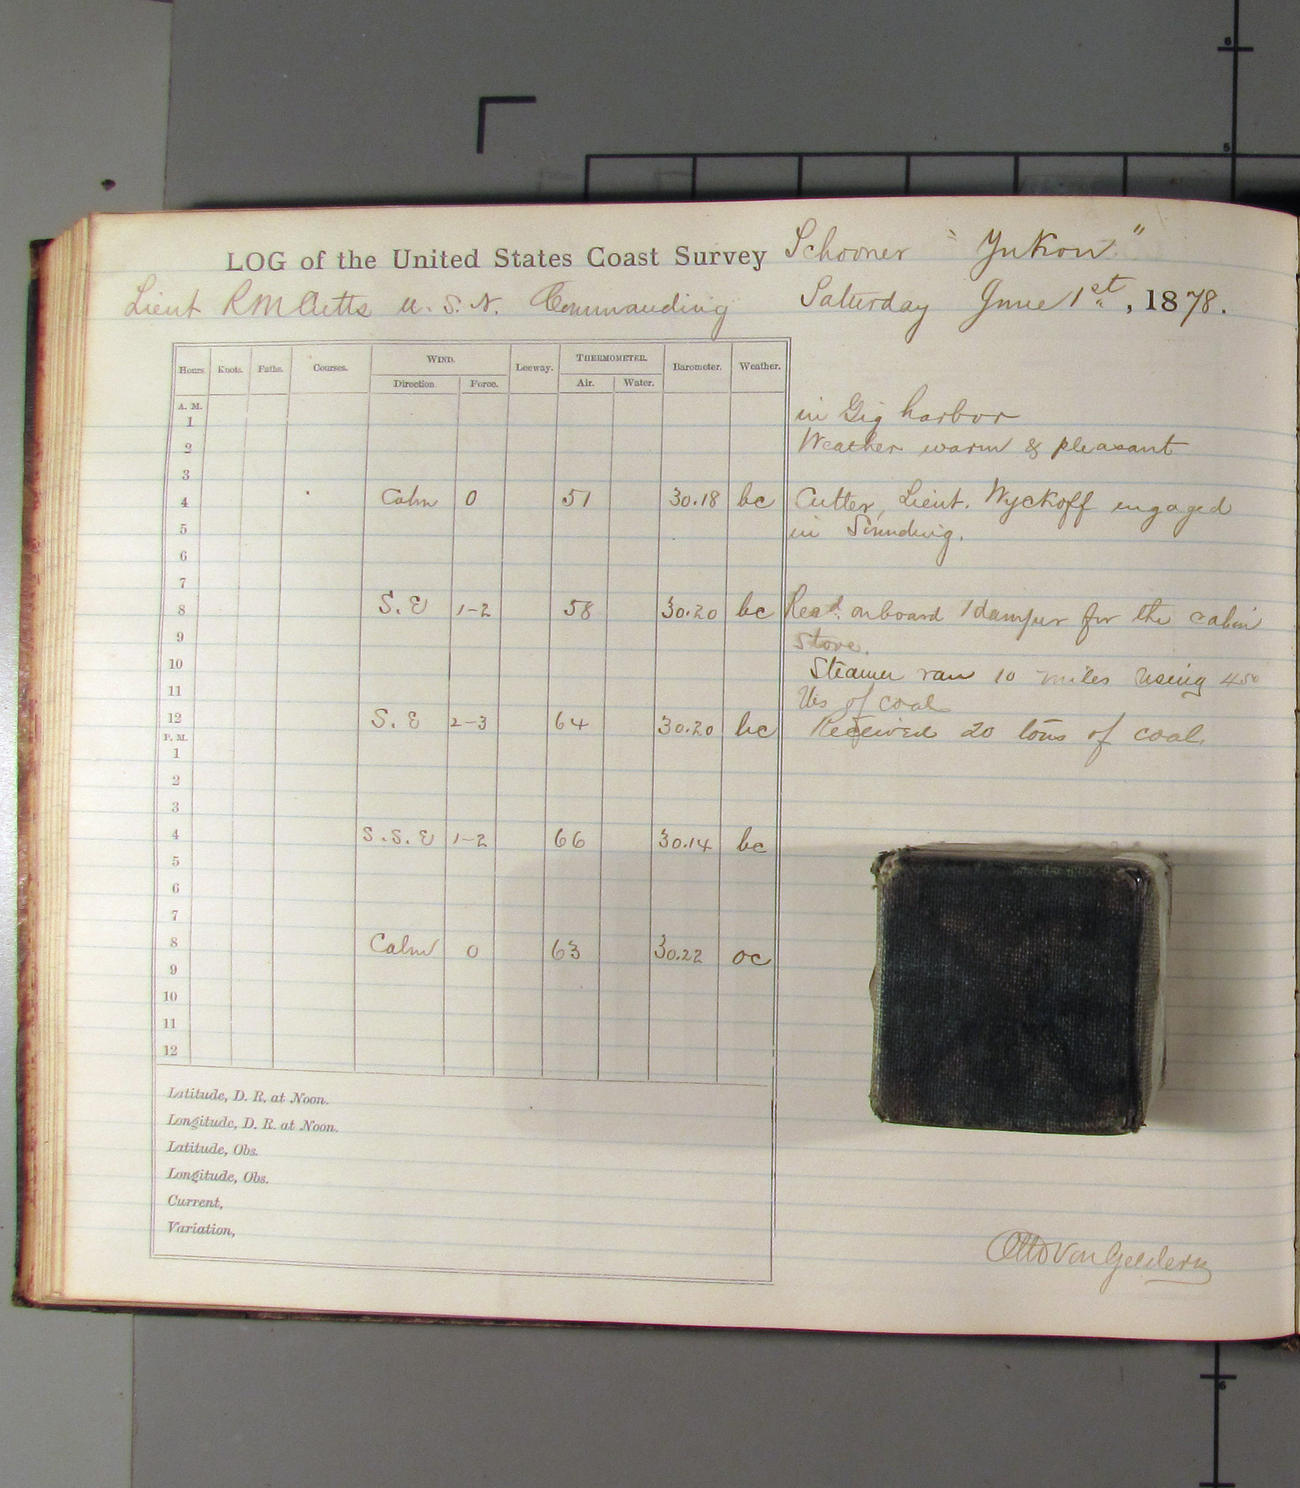 LOG of the United States Coast Survey Schooner "Yukon"
Lieut R M Cutts U. S. N. Commanding Saturday June 1st, 1878.
Hours. Knots. Faths. Courses. WIND. Leeway. THERMOMETER. Barometer. Weather.
Direction. Force. Air. Water.
A. M.
1 in Gig harbor
2 Weather warm & pleasant
3
4 Calm 0 51 30.18 bc Cutter, Lieut. Wyckoff engaged
5 in Sounding.
6
7
8 S. E 1-2 58 30.20 bc Recd. onboard 1 damper for the cabin
9 stove.
10 Steamer ran 10 miles using 450
11 lbs of coal
12 S. E 2-3 64 30.20 bc Received 20 tons of coal.
P. M.
1
2
3
4 S. S. E 1-2 66 30.14 bc
5
6
7
8 Calm 0 63 30.22 oc
9
10
11
12
Latitude, D. R. at Noon.
Longitude, D. R. at Noon.
Latitude, Obs.
Longitude, Obs.
Current,
Variation,
Otto Von Geldern
6
5
6